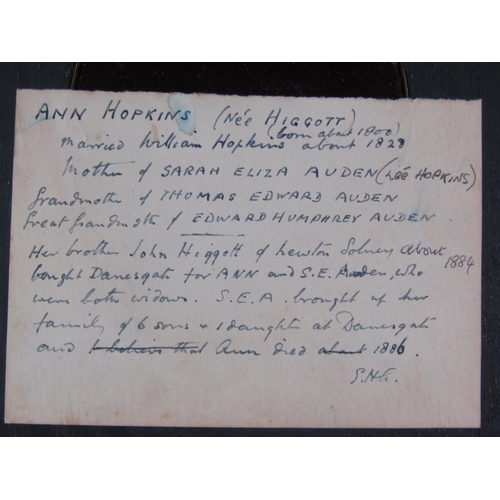 ANN HOPKINS (Née HIGGOTT)
(born about 1800)
married William Hopkins about 1828
Mother of SARAH ELIZA AUDEN (Née HOPKINS)
Grandmother of THOMAS EDWARD AUDEN
Great Grandmoth of EDWARD HUMPHREY AUDEN
Her brother John Higgott of Newton Solney about 1884
bought Danesgate for ANN and S.E. Auden, who
were both widows. S.E.A. brought up her
family of 6 sons & 1 daught at Danesgate
and I believe that Ann died about 1886.